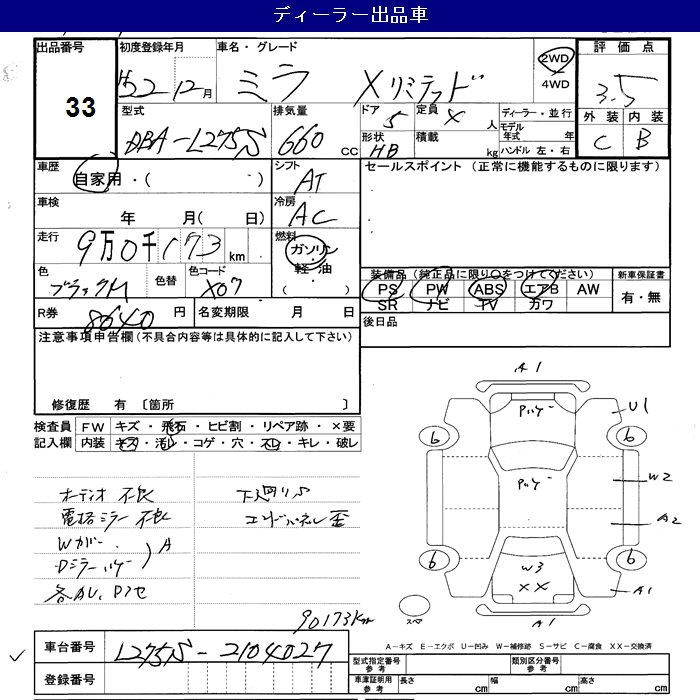 ディーラー出品車
出品番号 初度登録年月 車名・グレード 評価点
33
H22 12月 ミラ Xリミテッド 2WD 4WD 3.5
型式 排気量 ドア 定員 ディーラー・並行 外装 内装
DBA-L275S 660 CC 5 人 モデル年式 年 C B
形状 HB 積載 kg ハンドル 左・右
車歴 シフト セールスポイント (正常に機能するものに限ります)
自家用・( ) AT
車検 年 月( 日) 冷房 AC
走行 燃料
9万0千173km ガソリン・軽油・( )
色 色替 色コード 装備品(純正品に限り○をつけてください) 新車保証書
ブラックM X07 PS PW ABS エアB AW 有・無
SR ナビ TV カワ
R券 8640 円 名変期限 月 日 後日品
注意事項申告欄(不具合内容等は具体的に記入して下さい)
修復歴 有 〔箇所 〕
検査員 FW キズ・飛石・ヒビ割・リペア跡・×要
記入欄 内装 キズ・汚レ・コゲ・穴・スレ・キレ・破レ
オーディオ不良 下廻りS
電格ミラー不良 エンドパネル歪
Wカバー
A
90173km
A1
U1
6 6
W2
A2
6 6
W3
XX
A1
スペ
A1
A-キズ E-エクボ U-凹み W-補修跡 S-サビ C-腐食 XX-交換済
車台番号 L275S-2104027
登録番号
型式指定番号 参考 類別区分番号 参考
車庫証明用 参考 長さ cm 幅 cm 高さ cm